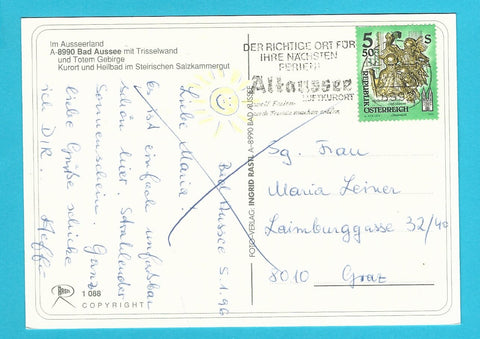 Im Ausseerland
A-8990 Bad Aussee mit Trisselwand
und Totem Gebirge
Kurort und Heilbad im Steirischen Salzkammergut
DER RICHTIGE ORT FÜR
IHRE NÄCHSTEN
FERIEN!
Altaussee
LUFTKURORT
5
50
S
REPUBLIK
ÖSTERREICH
Bad Aussee 5.1.96
Liebe Maria!
Es ist einfach unfaßbar
schön hier. Strahlender
Sonnenschein. Ganz
liebe Grüße schicke
ich DIR. Steffi
FOTO-VERLAG INGRID RASTL A-8990 BAD AUSSEE
Sg. Frau
Maria Leiner
Laimburggasse 32/40
8010 Graz
1 088
COPYRIGHT